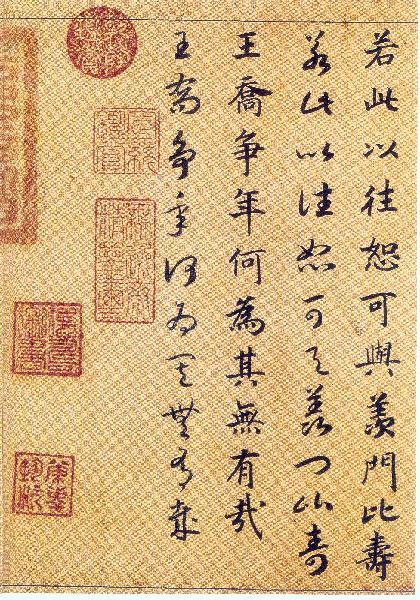 若此以往恕可與羨門比壽
若此以往恕可與羨門比壽
王喬争年何為其無有哉
王喬争年何為其無有哉